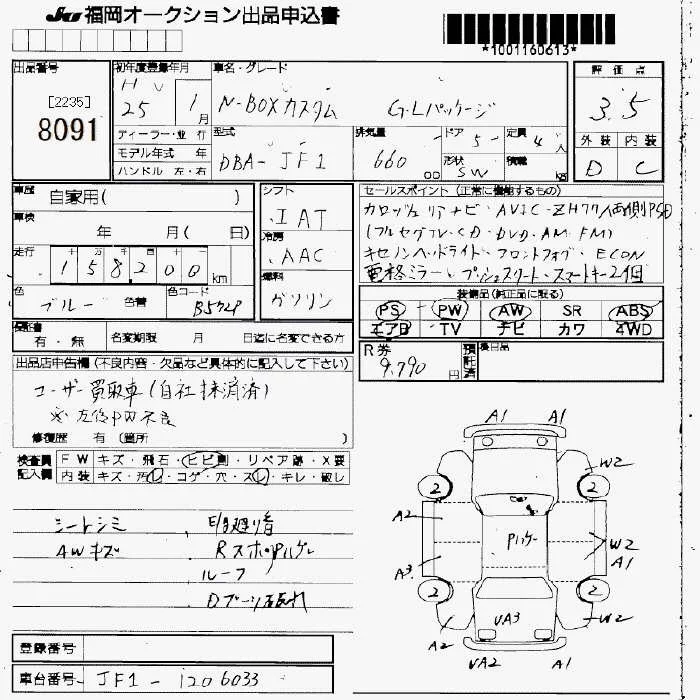 JU 福岡オークション出品申込書
*1001160613*
出品番号 初年度登録年月 車名・グレード 評価点
[2235] 8091
H 25年 1月 N-BOXカスタム G・Lパッケージ 3.5
ディーラー・並行 型式 排気量 ドア 定員 外装 内装
モデル年式 年 DBA-JF1 660 00 5 4人 D C
ハンドル 左・右 形状 SW 積載 kg
車歴 自家用( ) シフト IAT
車検 年 月( 日) 冷房 AAC
走行 十万 万 千 158200 km 燃料 ガソリン
色 ブルー 色替 色コード B572P
セールスポイント (正常に機能するもの)
カロッツェリアナビ・AVIC-ZH77/両側PSD
(フルセグTV・CD・DVD・AM・FM)
キセノンヘッドライト・フロントフォグ・ECON
電格ミラー・プッシュスタート・スマートキー2個
装備品(純正品に限る)
PS PW AW SR ABS
エアB TV ナビ カワ 4WD
保証書 有・無 名変期限 月 日迄に名変できる方
R券 9,790円 預託済 後日品
出品店申告欄 (不良内容・欠品など具体的に記入して下さい)
ユーザー買取車(自社抹消済)
※左後PW不良
修復歴 有 (箇所 )
検査員記入欄 FW キズ・飛石・ヒビ割・リペア跡・X要
内装 キズ・汚れ・コゲ・穴・スレ・キレ・破し
シートシミ
AWキズ RスポイPハゲ
ルーフ
Dブーツ破れ
A1 A1
W2
2 2
A2 Pハゲ W2
A3 A1
2 2
A2 UA3 W2
UA2 A1
登録番号
車台番号 JF1-1206033